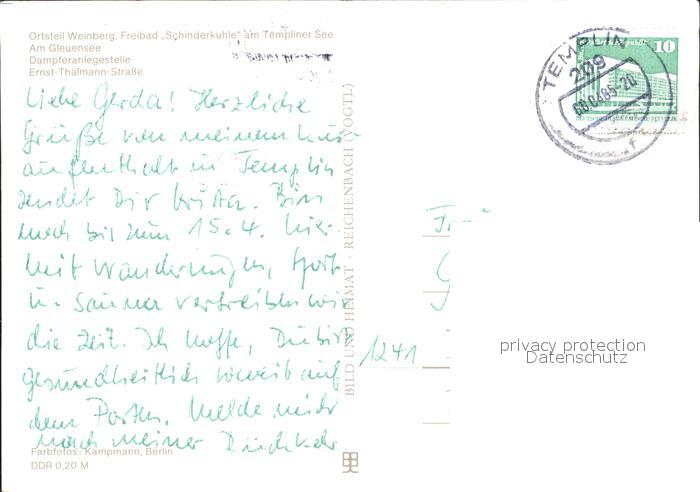 Ortsteil Weinberg, Freibad „Schinderkuhle" am Templiner See
Am Gleuensee
Dampferanlegestelle
Ernst-Thälmann-Straße
Liebe Gerda! Herzliche
Grüße von meinem Kur-
aufenthalt in Templin
sendet Dir Krista. Bin
noch bis zum 15.4. hier.
Mit Wanderungen, Sport
u. Sauna vertreiben wir
die Zeit. Ich hoffe, Du bist
gesundheitlich soweit auf
dem Posten. Melde mich
nach meiner Rückkehr.
Farbfotos: Kampmann, Berlin
DDR 0,20 M
BILD UND HEIMAT · REICHENBACH (VOGTL)
TEMPLIN
209
10
1241
privacy protection
Datenschutz